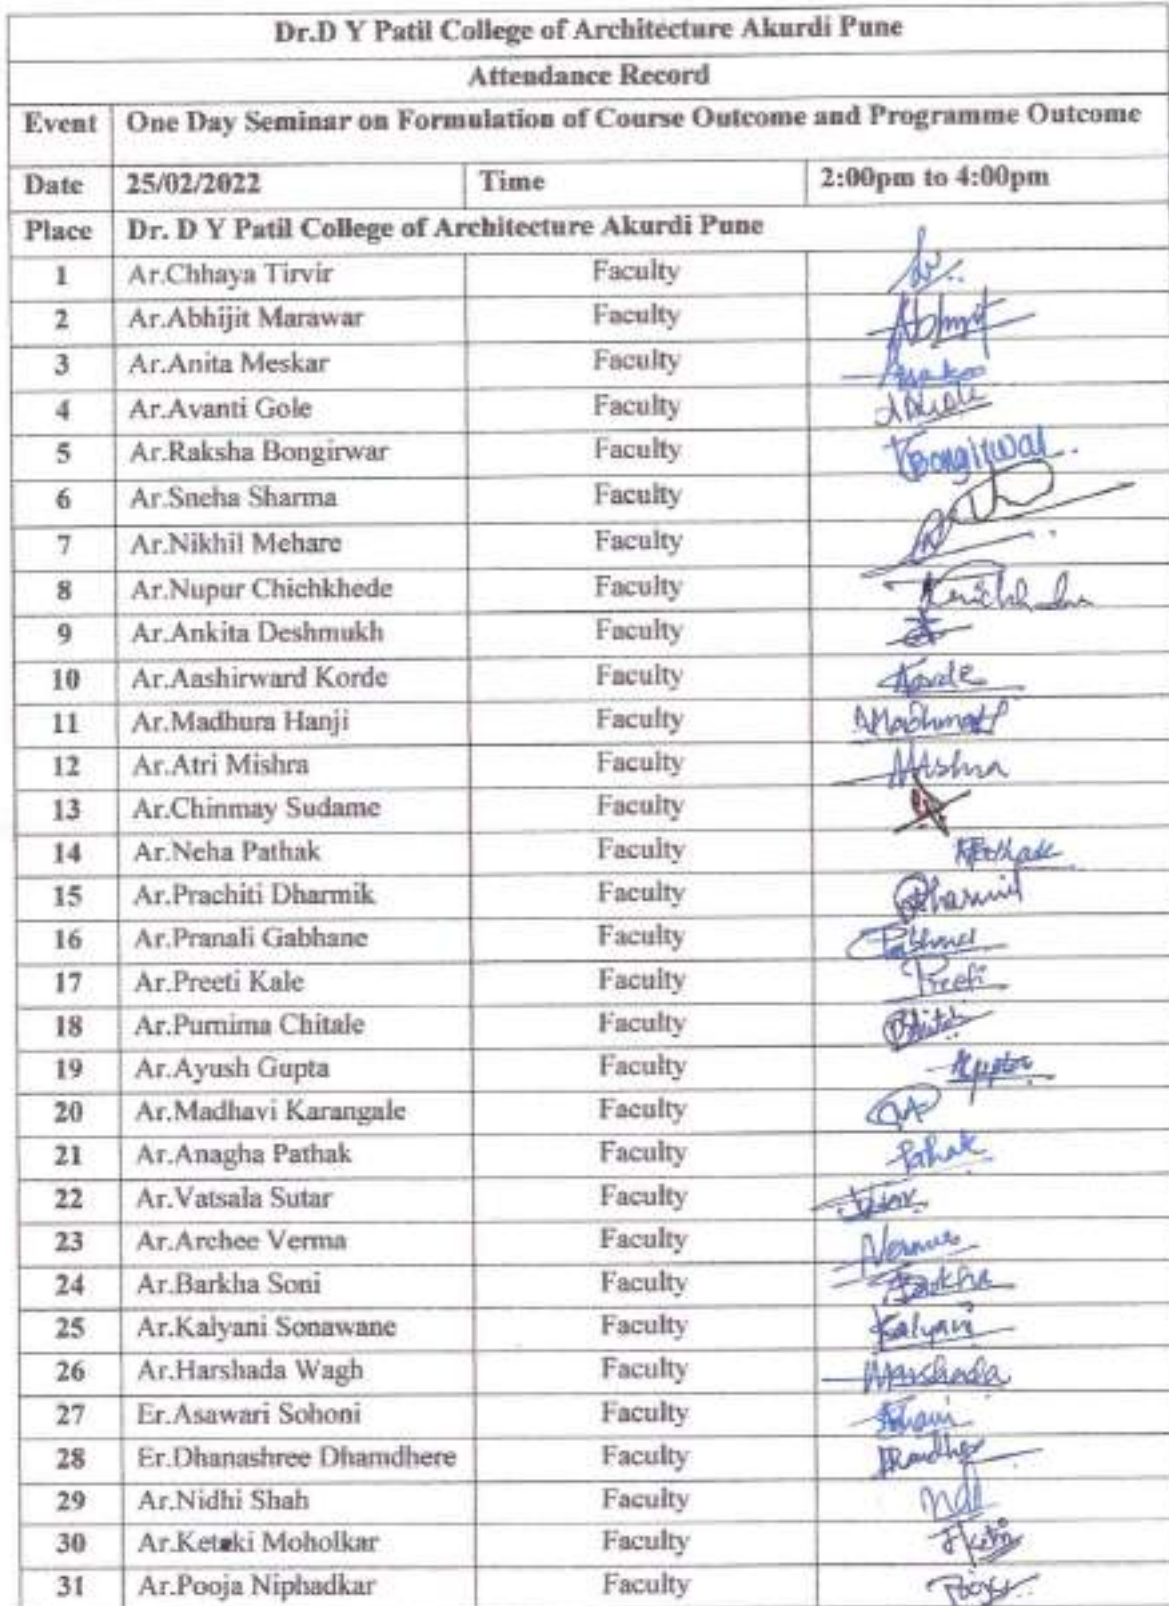 Dr.D Y Patil College of Architecture Akurdi Pune
Attendance Record
Event One Day Seminar on Formulation of Course Outcome and Programme Outcome
Date 25/02/2022 Time 2:00pm to 4:00pm
Place Dr. D Y Patil College of Architecture Akurdi Pune
1 Ar.Chhaya Tirvir Faculty
2 Ar.Abhijit Marawar Faculty Abhijit
3 Ar.Anita Meskar Faculty
4 Ar.Avanti Gole Faculty
5 Ar.Raksha Bongirwar Faculty RBongirwar
6 Ar.Sneha Sharma Faculty
7 Ar.Nikhil Mehare Faculty
8 Ar.Nupur Chichkhede Faculty
9 Ar.Ankita Deshmukh Faculty
10 Ar.Aashirward Korde Faculty Korde
11 Ar.Madhura Hanji Faculty
12 Ar.Atri Mishra Faculty AMishra
13 Ar.Chinmay Sudame Faculty
14 Ar.Neha Pathak Faculty NPathak
15 Ar.Prachiti Dharmik Faculty
16 Ar.Pranali Gabhane Faculty
17 Ar.Preeti Kale Faculty Preeti
18 Ar.Purnima Chitale Faculty
19 Ar.Ayush Gupta Faculty AGupta
20 Ar.Madhavi Karangale Faculty
21 Ar.Anagha Pathak Faculty Pathak
22 Ar.Vatsala Sutar Faculty
23 Ar.Archee Verma Faculty
24 Ar.Barkha Soni Faculty Barkha
25 Ar.Kalyani Sonawane Faculty Kalyani
26 Ar.Harshada Wagh Faculty Harshada
27 Er.Asawari Sohoni Faculty
28 Er.Dhanashree Dhamdhere Faculty
29 Ar.Nidhi Shah Faculty
30 Ar.Ketaki Moholkar Faculty
31 Ar.Pooja Niphadkar Faculty